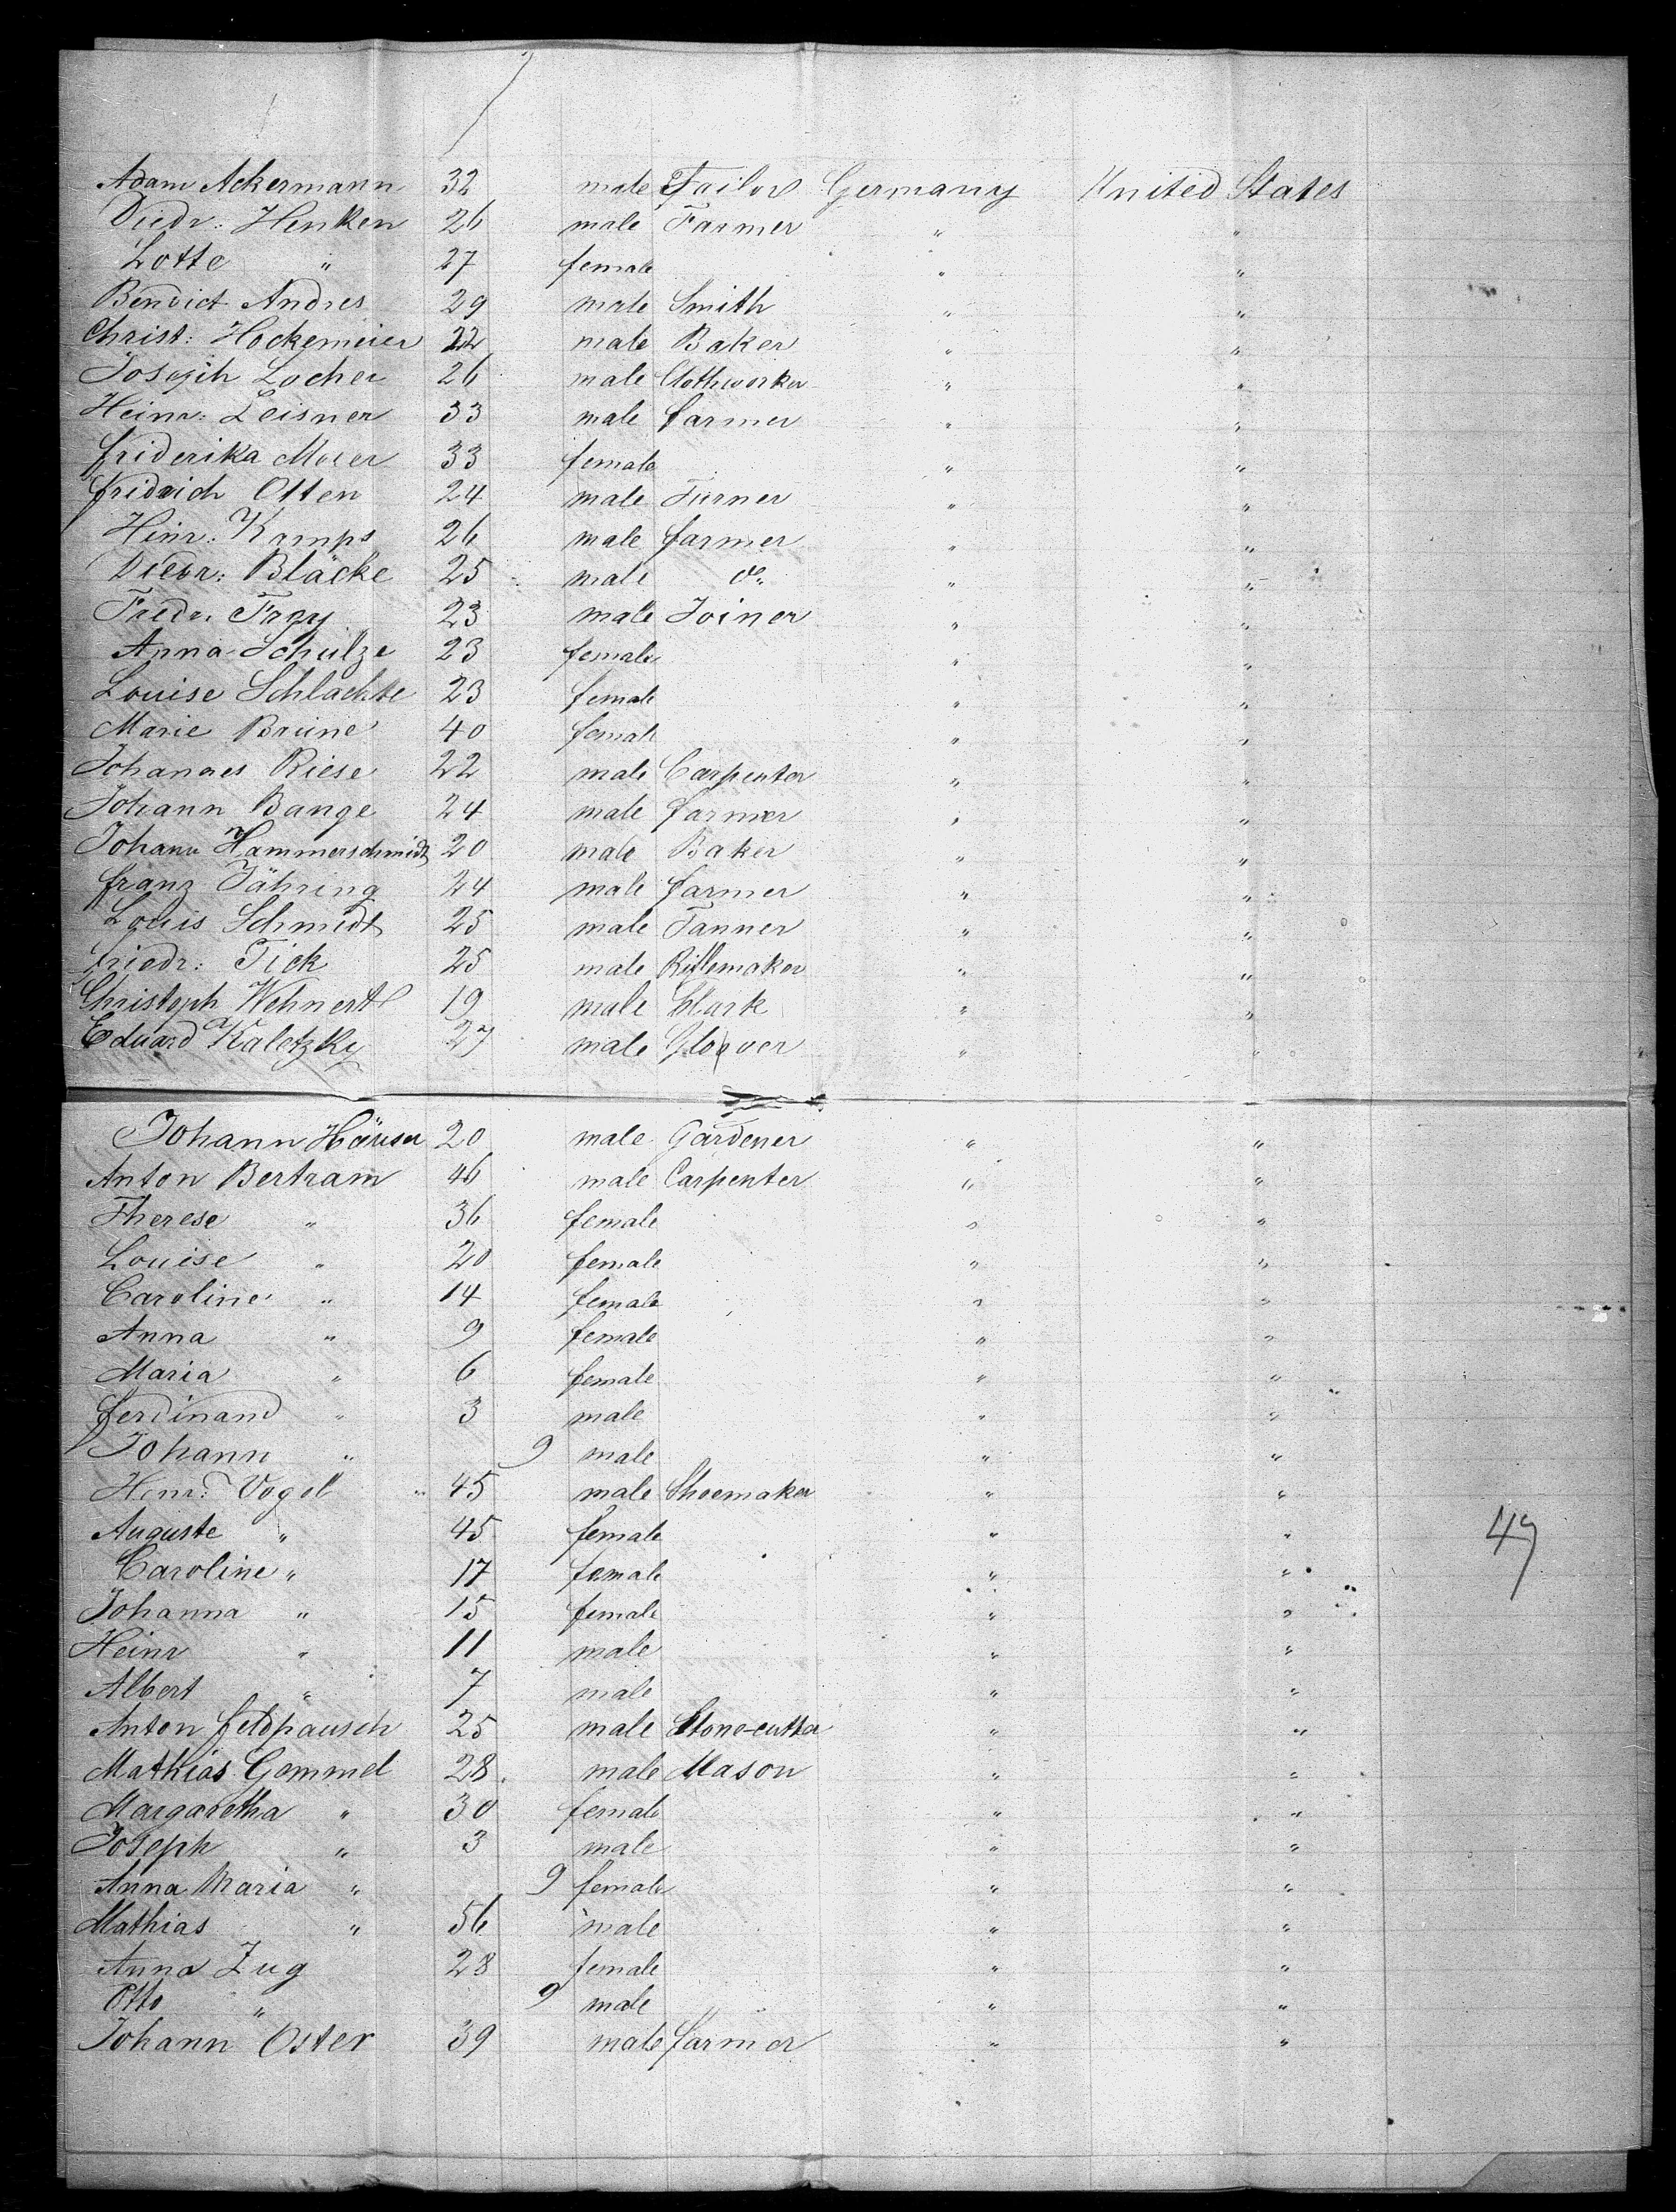 Adam Ackermann 32 male Tailor Germany United States
Diedr: Henken 26 male Farmer " "
Lotte " 27 female " "
Benedict Andres 29 male Smith " "
Christ: Hockemeier 22 male Baker " "
Joseph Locher 26 male Clothworker " "
Heinr: Leisner 33 male farmer " "
Friderika Moser 33 female " "
Fridrich Otten 24 male Turner " "
Hinr: Kamps 26 male farmer " "
Diedr: Bläcke 25 male do " "
Fredr. 23 male Joiner " "
Anna Schulze 23 female " "
Louise Schlachte 23 female " "
Marie Brüne 40 female " "
Johannes Riese 22 male Carpenter " "
Johann Bange 24 male farmer " "
Johann Hammerschmidt 20 male Baker " "
Franz Jähring 24 male farmer " "
Louis Schmidt 25 male Tanner " "
Friedr: Tick 25 male Riflemaker " "
Christoph Wehnert 19 male Clark " "
Eduard Kaletzky 27 male Glover " "
Johann Häuser 20 male Gardener " "
Anton Bertram 46 male Carpenter " "
Therese " 36 female " "
Louise " 20 female " "
Caroline " 14 female " "
Anna " 9 female " "
Maria " 6 female " "
Ferdinand " 3 male " "
Johann " 9 male " "
Henr: Vogel " 45 male Shoemaker " "
Auguste " 45 female " "
Caroline " 17 female " "
Johanna " 15 female " "
Heinr " 11 male " "
Albert " 7 male " "
Anton Feldpausch 25 male Stone-cutter " "
Mathias Gommel 28 male Mason " "
Margaretha " 30 female " "
Joseph " 3 male " "
Anna Maria " 9 female " "
Mathias " 56 male " "
Anna Zug 28 female " "
Otto " 9 male " "
Johann Oster 39 male farmer " "
49